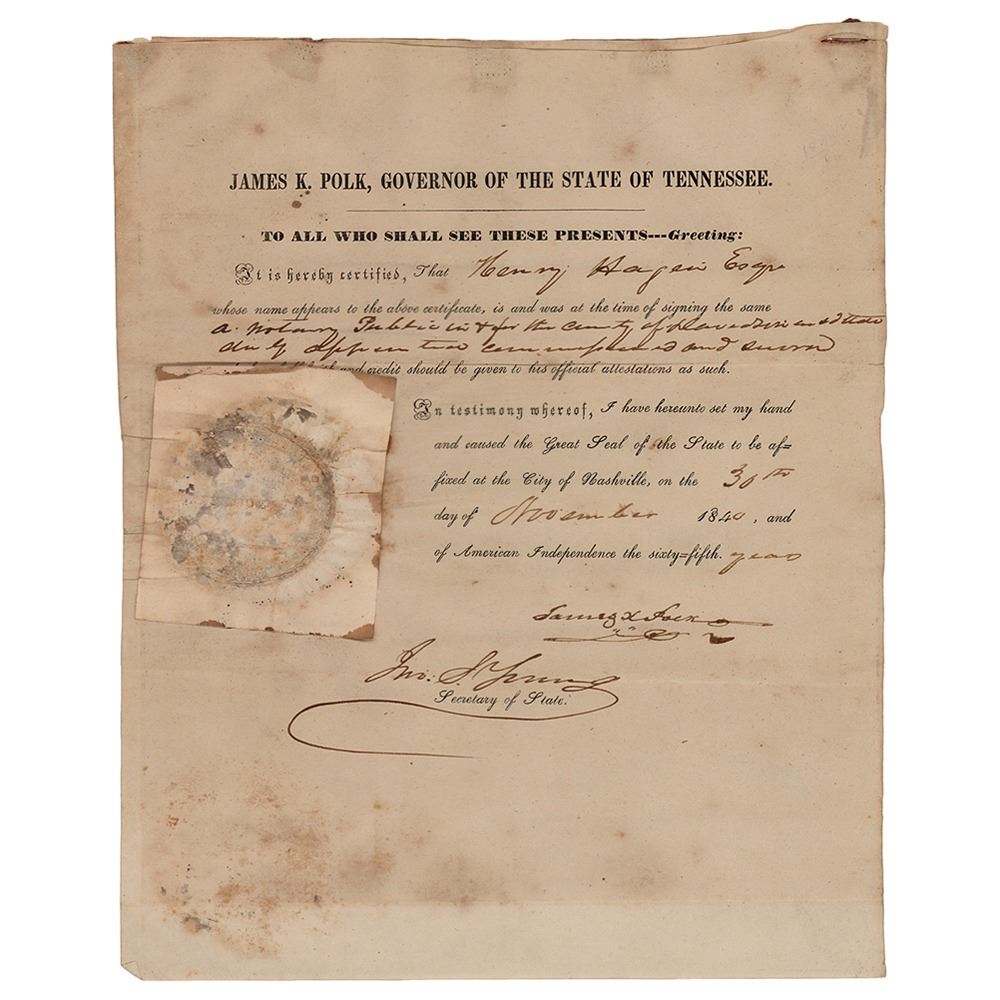 JAMES K. POLK, GOVERNOR OF THE STATE OF TENNESSEE.
TO ALL WHO SHALL SEE THESE PRESENTS---Greeting:
It is hereby certified, That Henry Hagan Esqr
whose name appears to the above certificate, is and was at the time of signing the same
a notary Public in & for the county of Davidson and State
duly appointed commissioned and sworn
and credit should be given to his official attestations as such.
In testimony whereof, I have hereunto set my hand
and caused the Great Seal of the State to be af=
fixed at the City of Nashville, on the 30th
day of November 1840, and
of American Independence the sixty=fifth. year
James K Polk
Jno: S. Young
Secretary of State.